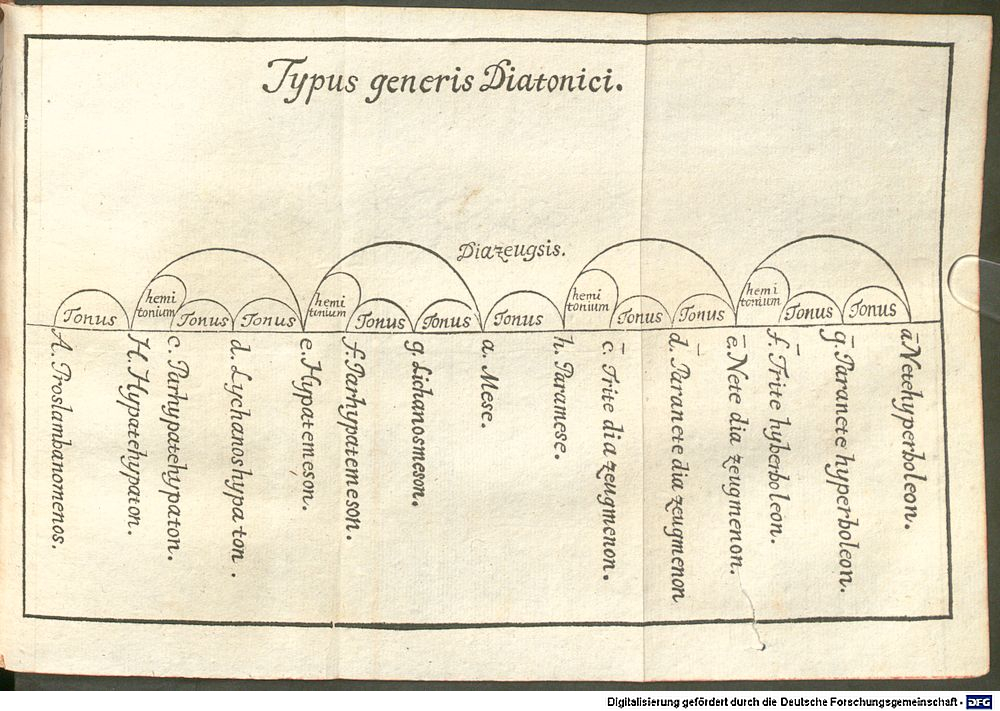 Typus generis Diatonici.
Diazeugsis.
Tonus
hemi
tonium
Tonus
Tonus
hemi
tunium
Tonus
Tonus
Tonus
hemi
tonium
Tonus
Tonus
hemi
tonium
Tonus
Tonus
A. Proslambanomenos.
H. Hypatehypaton.
c. Parhypatehypaton.
d. Lychanoshypaton.
e. Hypatemeson.
f. Parhypatemeson.
g. Lichanosmeson.
a. Mese.
h. Paramese.
c̄. Trite diazeugmenon.
d̄. Paranete diazeugmenon
ē. Nete diazeugmenon.
f̄. Trite hyberboleon.
ḡ. Paranete hyperboleon.
ā Netehyperboleon.
Digitalisierung gefördert durch die Deutsche Forschungsgemeinschaft - DFG